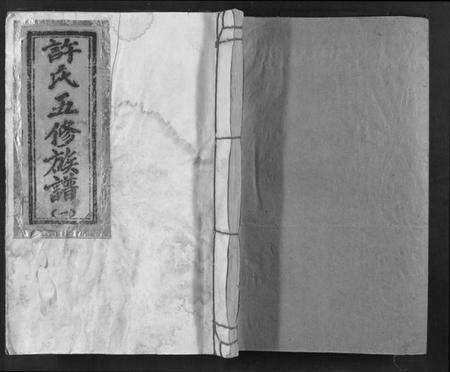 許氏五修族譜(一)